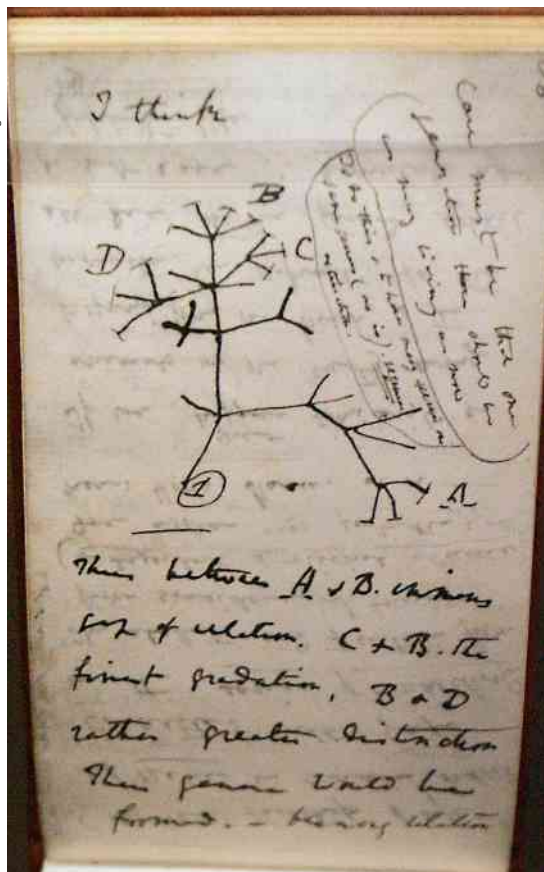 I think
B
D
C
A
1
Case must be that one
generation then should be
as many living as now
To do this & to have many species in
same genus (as is) requires
extinction.
Thus between A & B. immens
gap of relation. C & B. the
finest gradation, B & D
rather greater distinction
Thus genera would be
formed. — bearing relation